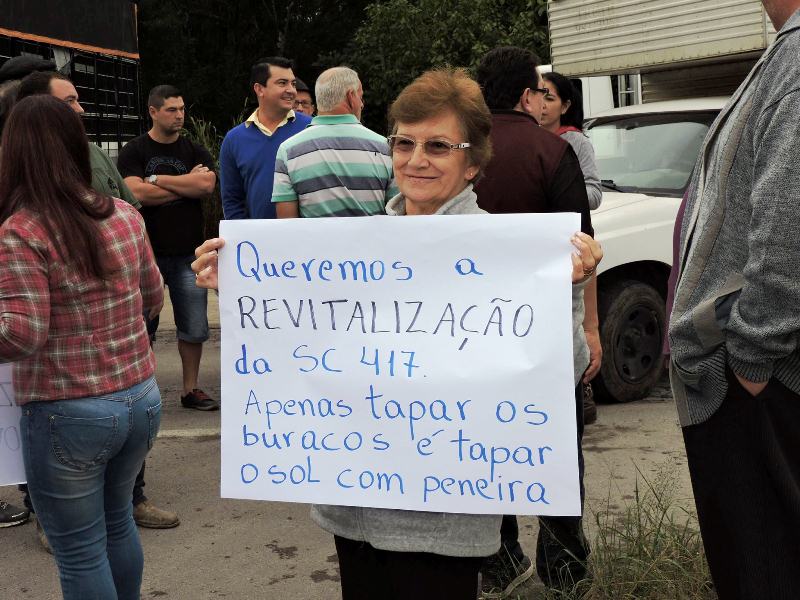 Queremos a
REVITALIZAÇÃO
da SC 417.
Apenas tapar os
buracos é tapar
o sol com peneira